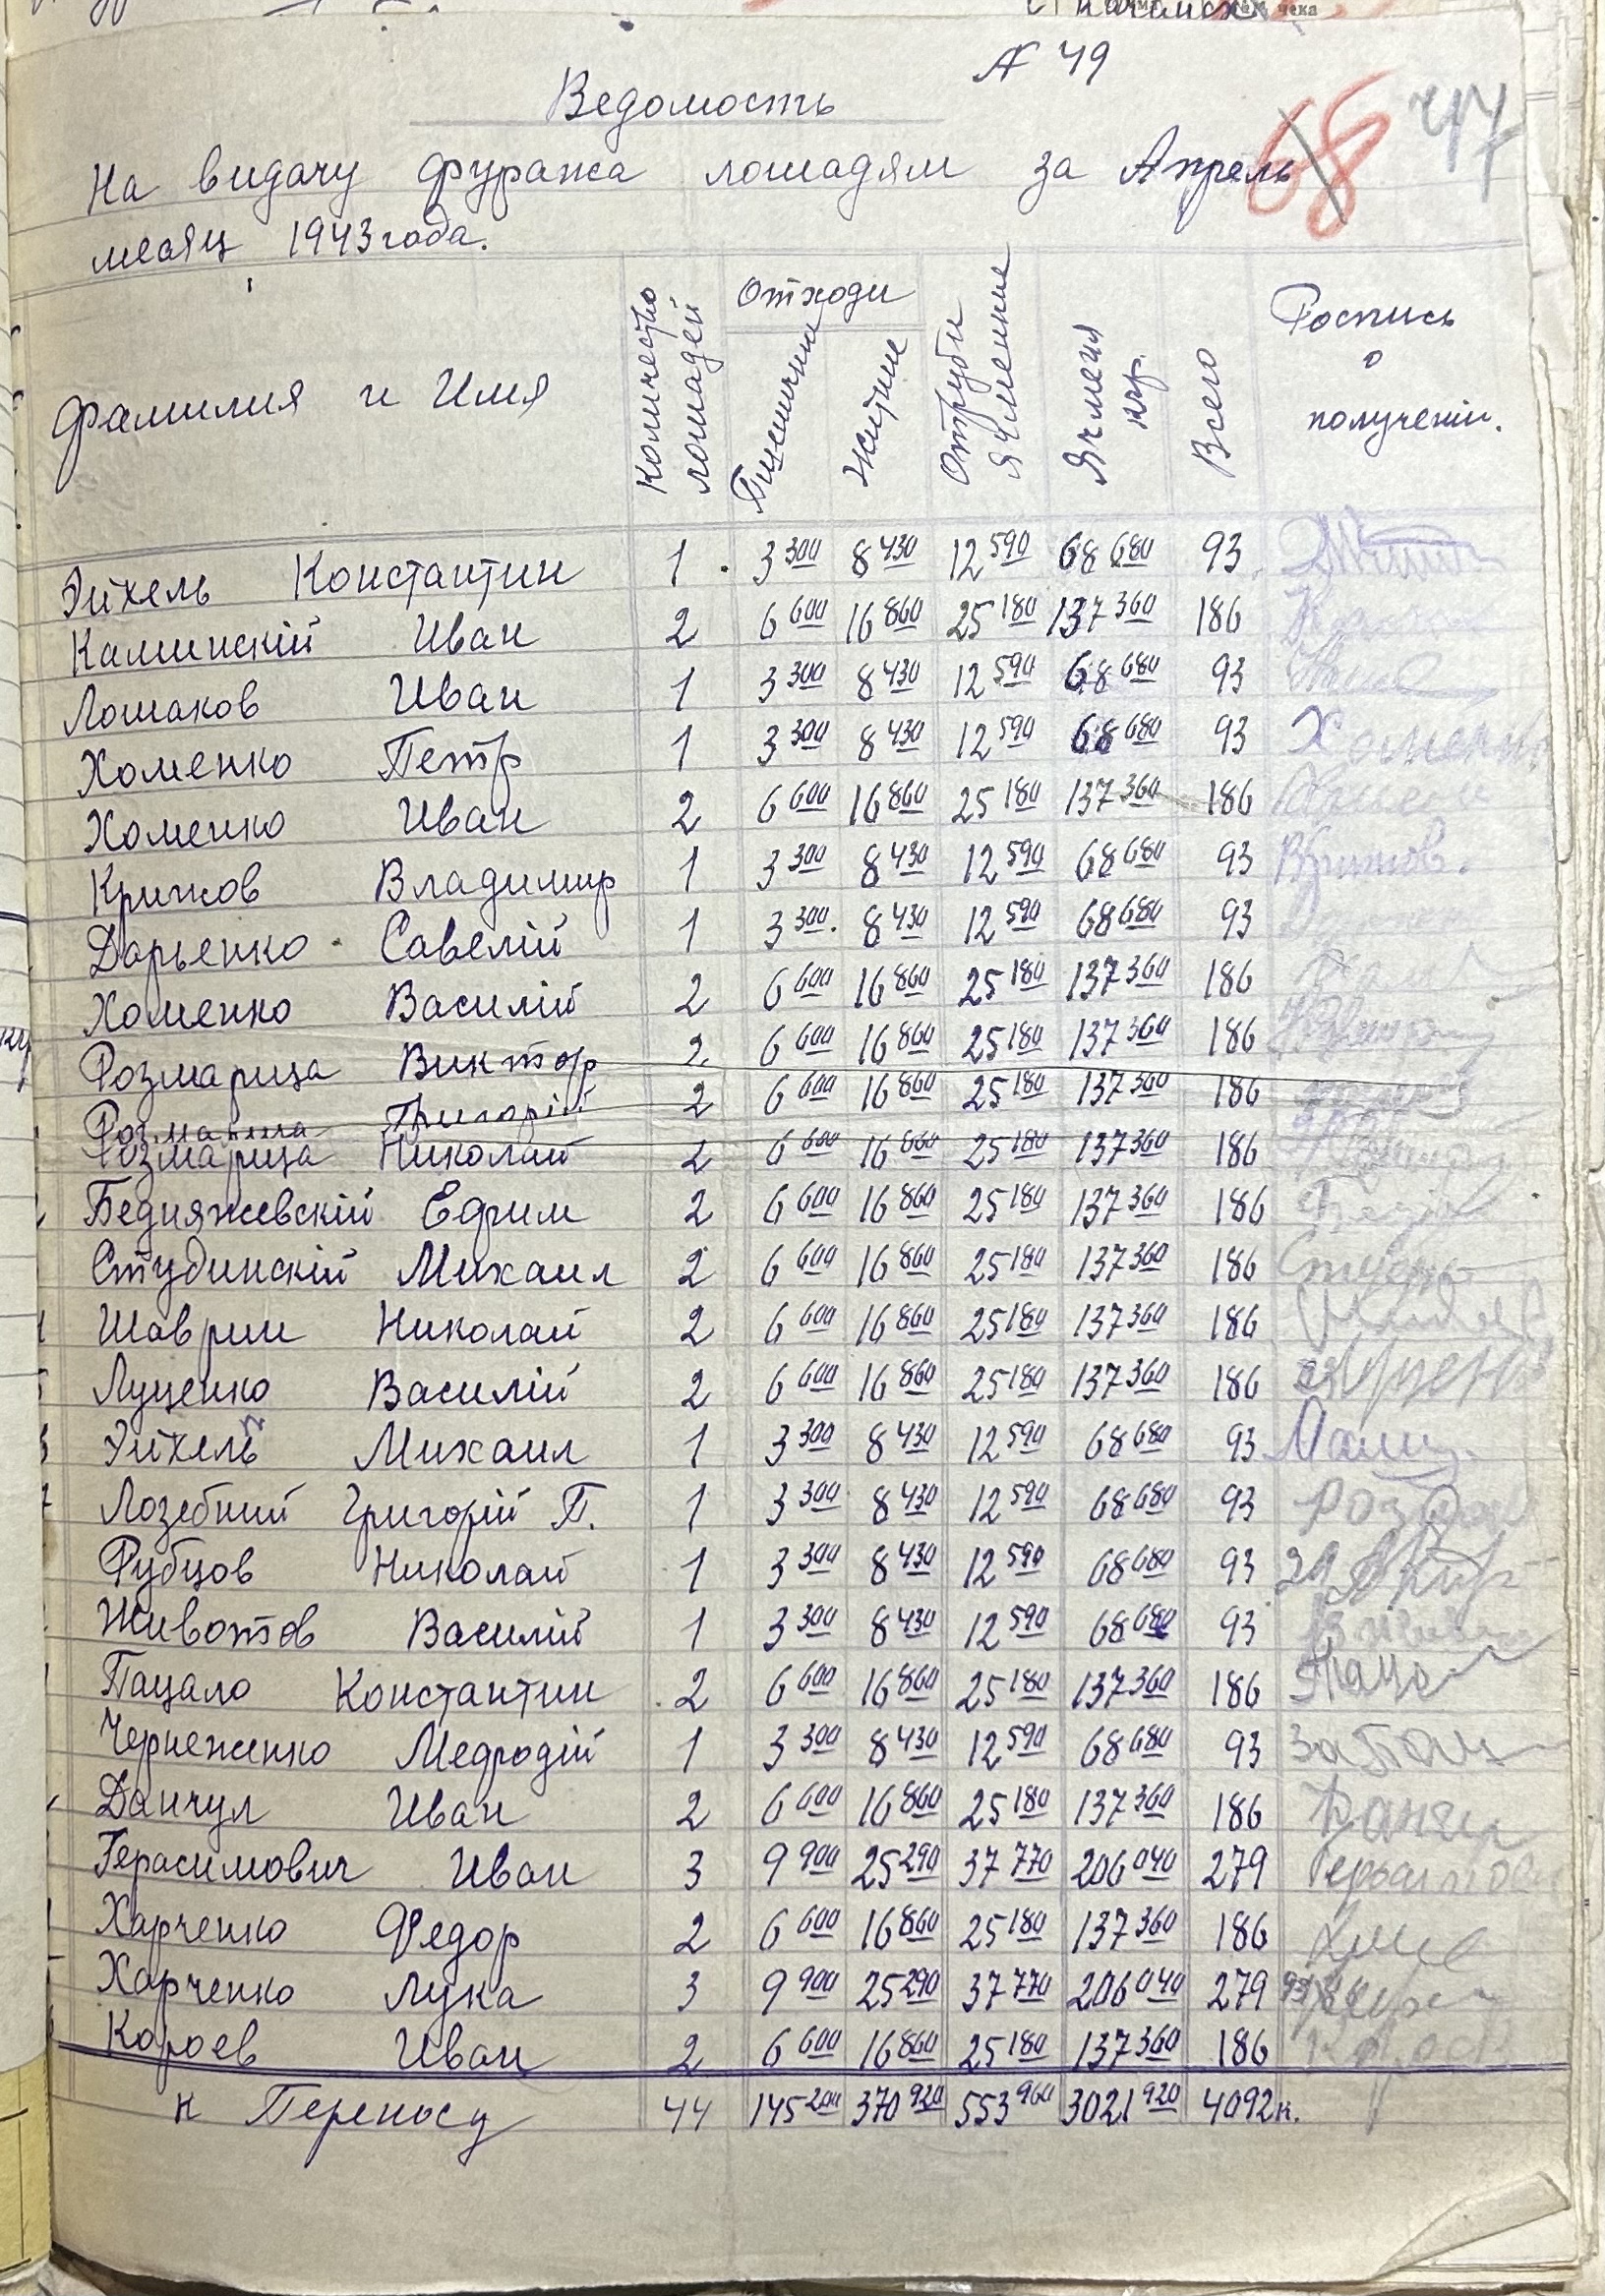 № 49
Ведомость
68 47
На видачу фуража лошадям за Апрель
месяц 1943 года.
Фамилия и Имя Количество лошадей Отходи Пшенични Житние Отруби Ячменние Ячменя кгр. Всего Роспись о получении.
Эйхель Константин 1 3 300 8 430 12 590 68 680 93
Каминскій Иван 2 6 600 16 860 25 180 137 360 186
Лошаков Иван 1 3 300 8 430 12 590 68 680 93
Хоменко Петр 1 3 300 8 430 12 590 68 680 93 Хоменко
Хоменко Иван 2 6 600 16 860 25 180 137 360 186
Крижов Владимир 1 3 300 8 430 12 590 68 680 93
Дарьенко Савелій 1 3 300 8 430 12 590 68 680 93
Хоменко Василій 2 6 600 16 860 25 180 137 360 186
Розмарица Виктор 2 6 600 16 860 25 180 137 360 186
Розмарица Григорій 2 6 600 16 860 25 180 137 360 186
Розмарица Николай 2 6 600 16 860 25 180 137 360 186
Бедняжевскій Ефим 2 6 600 16 860 25 180 137 360 186
Студинскій Михаил 2 6 600 16 860 25 180 137 360 186
Шаврин Николай 2 6 600 16 860 25 180 137 360 186
Луценко Василій 2 6 600 16 860 25 180 137 360 186
Эйхель Михаил 1 3 300 8 430 12 590 68 680 93
Лозебний Григорій П. 1 3 300 8 430 12 590 68 680 93
Рубцов Николай 1 3 300 8 430 12 590 68 680 93
Животов Василій 1 3 300 8 430 12 590 68 680 93
Пацало Константин 2 6 600 16 860 25 180 137 360 186
Черненко Мефодій 1 3 300 8 430 12 590 68 680 93
Данчул Иван 2 6 600 16 860 25 180 137 360 186
Герасимович Иван 3 9 900 25 290 37 770 206 040 279
Харченко Федор 2 6 600 16 860 25 180 137 360 186
Харченко Лука 3 9 900 25 290 37 770 206 040 279
Короев Иван 2 6 600 16 860 25 180 137 360 186
к Переносу 44 145 200 370 920 553 960 3021 920 4092 к.